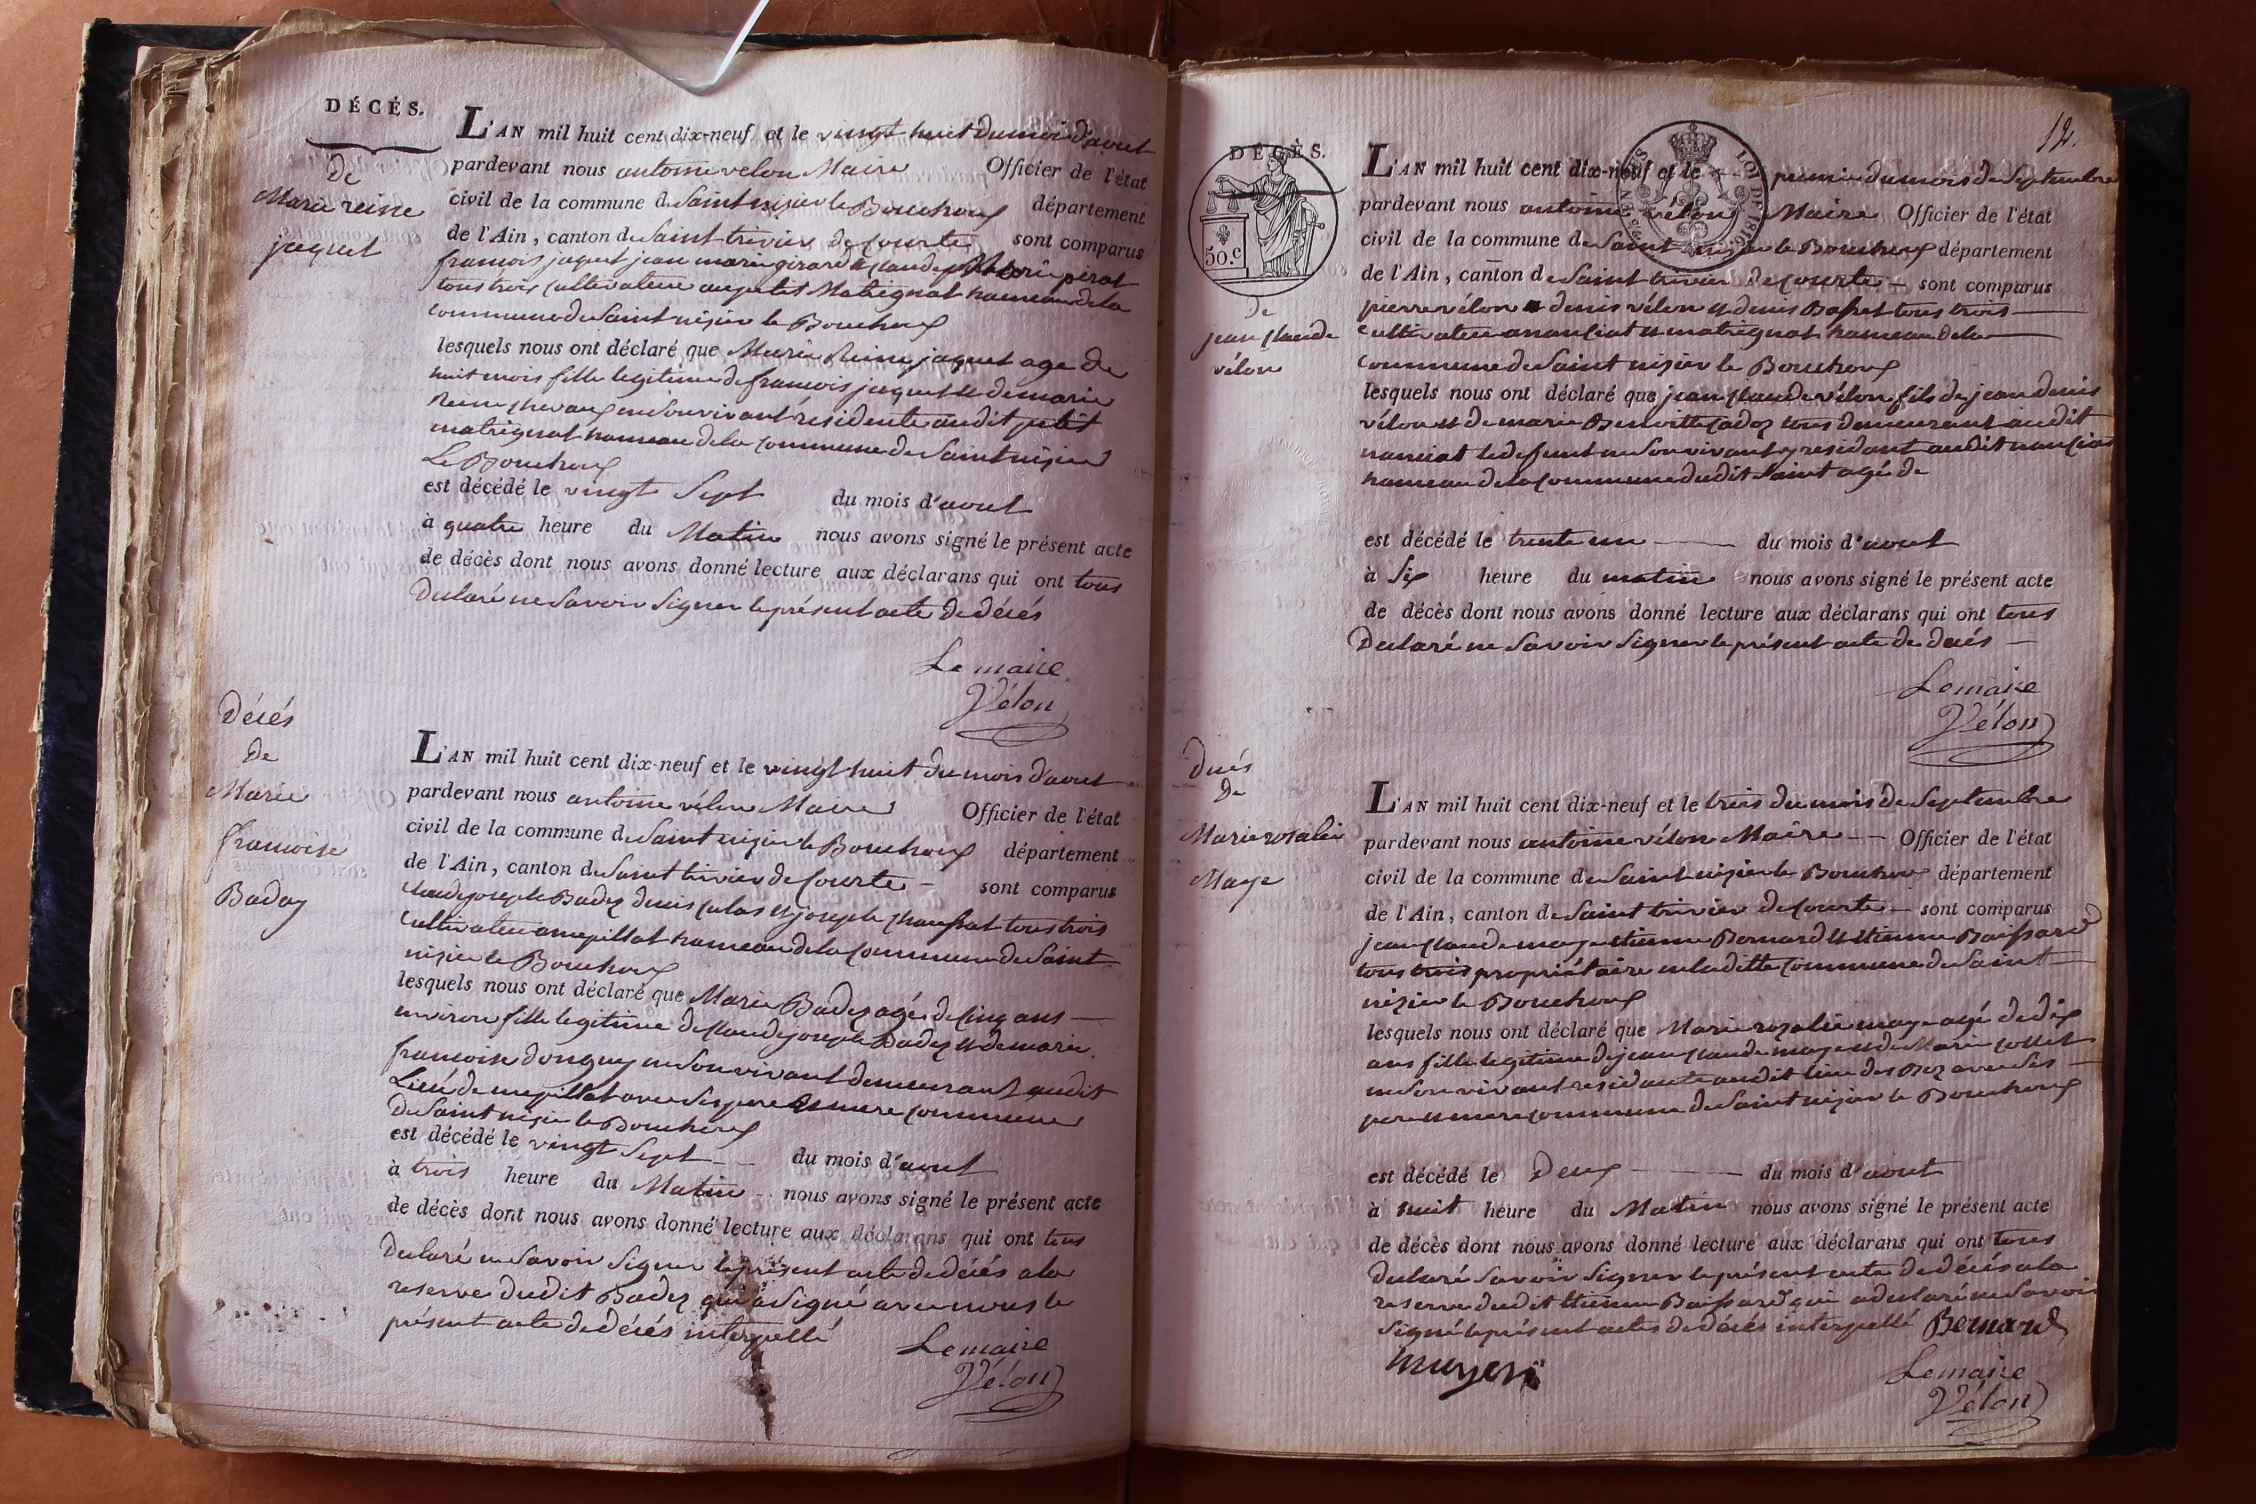 DÉCÉS.
De
Marie reine
jaquet
L'AN mil huit cent dix-neuf et le vingt huit du mois d'aout
pardevant nous antoine velon Maire Officier de l'état
civil de la commune de Saint nizier le Bouchoux département
de l'Ain, canton de Saint trivier de Courte sont comparus
francois jaquet jean marie girard et claude pirat
tous trois cultivateur au petit Matrignat hameau de la
commune de Saint nizier le Bouchoux
lesquels nous ont déclaré que Marie Reine jaquet age de
huit mois fille legitime de francois jaquet et de marie
Reine en Son vivant residente audit petit
matrignat hameau de la commune de Saint nizier
Le Bouchoux
est décédé le vingt Sept du mois d'aout
à quatre heure du Matin nous avons signé le présent acte
de décès dont nous avons donné lecture aux déclarans qui ont tous
Declaré ne Savoir Signer le présent acte De décés
Le maire
Vélon
Décés
De
Marie
francoise
Badoz
L'AN mil huit cent dix-neuf et le vingt huit du mois d'aout
pardevant nous antoine vélon Maire Officier de l'état
civil de la commune de Saint nizier le Bouchoux département
de l'Ain, canton de Saint trivier de Courte sont comparus
Claude joseph Badoz denis et joseph tous trois
Cultivateur a mepillat hameau de la Commune de Saint
nizier le Bouchoux
lesquels nous ont déclaré que Marie Badoz agé de cinq ans
environ fille legitime de Claude joseph Badoz et de marie
francoise donguy en Son vivant demeurant audit
Lieu de mepillat avec Ses pere et mere commune
de Saint nizier le Bouchoux
est décédé le vingt Sept du mois d'aout
à trois heure du Matin nous avons signé le présent acte
de décès dont nous avons donné lecture aux déclarans qui ont tous
Declaré ne Savoir Signer le présent acte de décés a la
reserve dudit Badoz qui a Signé avec nous le
présent acte de décés interpellé
Le maire
Vélon
12.
DÉCÈS.
50.c
LOI DE 1816.
de
jean Claude
vélon
L'AN mil huit cent dix-neuf et le premier du mois de Septembre
pardevant nous antoine vélon Maire Officier de l'état
civil de la commune de Saint nizier le Bouchoux département
de l'Ain, canton de Saint trivier De Courte sont comparus
pierre vélon denis vélon et denis tous trois
Cultivateur a nanciat et matrignat hameau de la
Commune de Saint nizier le Bouchoux
lesquels nous ont déclaré que jean Claude vélon fils de jean denis
vélon et de marie Benoitte Cadoz tous demeurant audit
nanciat le defunt en Son vivant y residant audit nanciat
hameau de la Commune dudit Saint agé de
est décédé le trente un du mois d'aout
à Six heure du matin nous avons signé le présent acte
de décès dont nous avons donné lecture aux déclarans qui ont tous
Declaré ne Savoir Signer le présent acte de decés
Le maire
Vélon
Decés
De
Marie rosalie
Maye
L'AN mil huit cent dix-neuf et le trois du mois de Septembre
pardevant nous antoine vélon Maire Officier de l'état
civil de la commune de Saint nizier le Bouchoux département
de l'Ain, canton de Saint trivier de Courte sont comparus
jean Claude maye etienne Bernard et etienne Baissard
tous trois propriétaire en la ditte Commune de Saint
nizier le Bouchoux
lesquels nous ont déclaré que Marie rozalie maye agé de dix
ans fille legitime de jean Claude maye et de Marie collet
en Son vivant residante audit lieu des Boz avec Ses
pere et mere commune de Saint nizier le Bouchoux
est décédé le Deux du mois d'aout
à huit heure du Matin nous avons signé le présent acte
de décès dont nous avons donné lecture aux déclarans qui ont tous
Declaré Savoir Signer le présent acte de décés a la
reserve dudit etienne Baissard qui a declaré ne Savoir
Signé le présent acte de décés interpellé Bernard
Le maire
Vélon